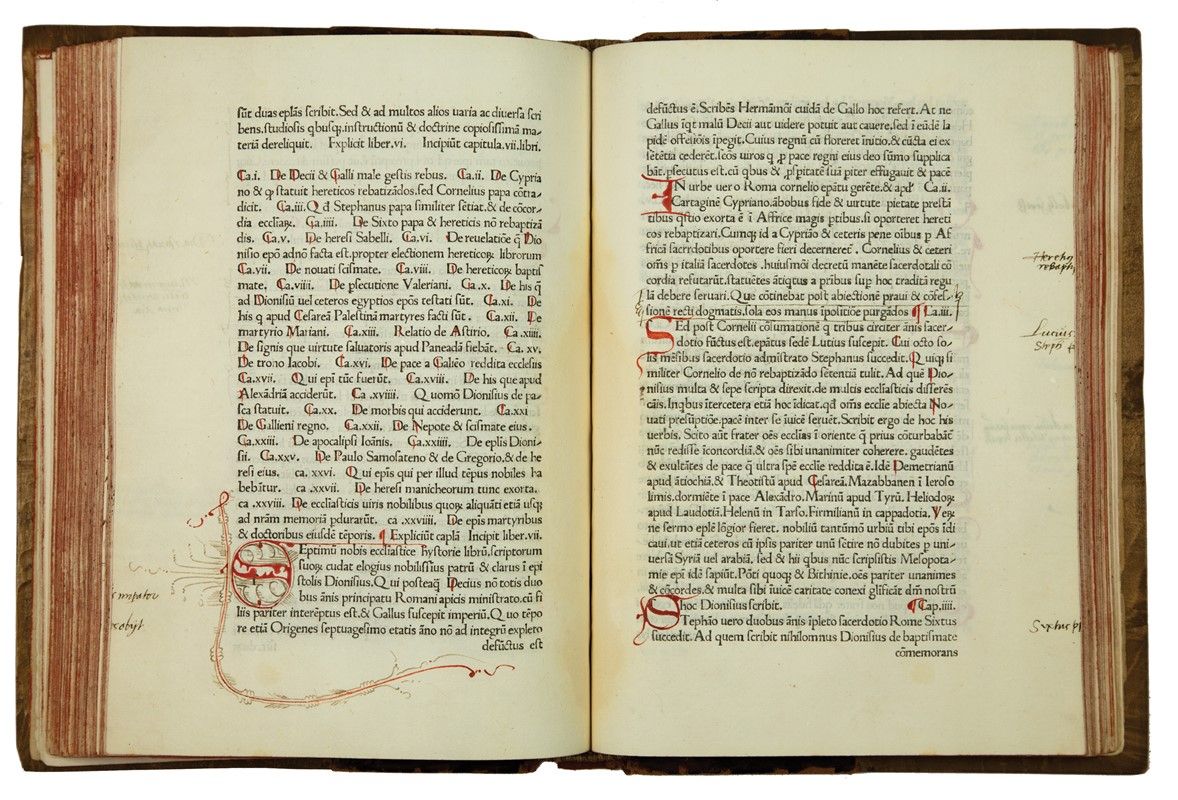 sūt duas eplās scribit.Sed & ad multos alios uaria ac diuersa scri
bens.studiosis qbusq;.instructionū & doctrine copiosissimā ma⸗
teriā dereliquit. Explicit liber.vi. Incipiūt capitula.vii.libri.
Ca.i. De Decii & Galli male gestis rebus. Ca.ii. De Cypria
no & ꝙ statuit hereticos rebatizādos.sed Cornelius papa cōtra⸗
dicit. Ca.iii.Q d Stephanus papa similiter sētiat.& de cōcor⸗
dia ecclīaꝝ. Ca.iiii. De Sixto papa & hereticis nō rebaptizā
dis. Ca.v. De heresi Sabelli. Ca.vi. De reuelatiōe q̄ Dio
nisio epō adnō facta est.propter electionem hereticoꝝ librorum
Ca.vii. De nouati scismate. Ca.viii. De hereticoꝝ baptis
mate. Ca.viiii. De psecutione Valeriani. Ca.x. De his q̄
ad Dionisiū uel ceteros egyptios epōs testati sūt. Ca.xi. De
his q apud Cesareā Palestinā martyres facti sūt. Ca.xii. De
martyrio Mariani. Ca.xiii. Relatio de Astirio. Ca.xiiii.
De signis que uirtute saluatoris apud Paneadā fiebāt. Ca. xv.
De trono Iacobi. Ca.xvi. De pace a Galiēo reddita ecclesiis
Ca.xvii. Q ui epī tūc fuerūt. Ca.xviii. De his que apud
Alexādriā acciderūt. Ca .xviiii. Q uomō Dionisius de pa⸗
sca statuit. Ca.xx. De morbis qui acciderunt. Ca.xxi
De Gallieni regno. Ca.xxii. De Nepote & scismate eius.
Ca.xxiii. De apocalipsi Ioānis. Ca.xxiiii. De eplīs Dioni⸗
sii. Ca.xxv. De Paulo Samosateno & de Gregorio.& de he
resi eius. ca. xxvi. Q ui epīs qui per illud tēpus nobiles ha
bebātur. ca .xxvii. De heresi manicheorum tunc exorta.
ca .xxviii. De ecclīasticis uiris nobilibus quoꝝ aliquāti etiā usq;
ad nrām memoriā pdurarūt. ca .xxviiii. De epīs martyribus
& doctoribus eiusdē tēporis. ¶ Expliciūt caplā Incipit liber.vii.
SEptimū nobis ecclīastice Hystorie librū.scriptorum
suoꝝ cudat elogius nobilissius patrū & clarus ī epi
stolis Dionisius.Q ui posteaq̄ Decius nō totis duo
bus ānis principatu Romani apicis ministrato.cū fi
liis pariter interēptus est.& Gallus suscepit imperiū.Q uo tēpo
re etiā Origenes septuagesimo etatis āno nō ad integrū expleto
defūctus est
defūctus ē.Scribēs Hermāmōi cuidā de Gallo hoc refert.At ne
Gallus īqt malū Decii aut uidere potuit aut cauere.sed ī eūdē la
pidē offēsiōis īpegit.Cuius regnū cū floreret īnitio.& cūcta ei ex
sētētia cederēt.scōs uiros q ꝓ pace regni eius deo sūmo supplica
bāt.psecutus est.cū qbus & ꝓspitatē suā piter effugauit & pacē
IN urbe uero Roma cornelio epātu gerēte.& apđ Ca.ii.
Cartaginē Cypriano.ābobus fide & uirtute pietate prestā
tibus qstio exorta ē ī Affrice magis ptibus.si oporteret hereti
cos rebaptizari.Cumq; id a Cypriāo & ceteris pene oībus p Af
fricā sacerdotibus oportere fieri decerneret̄. Cornelius & ceteri
om̄s p italiā sacerdotes .huiusmōi decretū manēte sacerdotali cō
cordia refutarūt.statuētes ātiqtus a pribus sup hoc traditā regu
lā debere seruari.Que cōtinebat post abiectionē praui & cōfes⸗
sionē recti dogmatis.sola eos manus īpositiōe purgādos ¶ Ca.iii.
SEd post Cornelii cōsumationē q tribus circiter ānis sacer⸗
dotio fūctus est.epātus sedē Lutius suscepit. Cui octo so⸗
lis mēsibus sacerdotio admīstrato Stephanus succedit.Q uiq; si
militer Cornelio de nō rebaptizādo sētentiā tulit. Ad quē Dio⸗
nisius multa & sepe scripta direxit.de multis ecclīasticis differēs
cāis.Inqbus ītercetera etiā hoc īdicat.qđ om̄s ecclīe abiecta No⸗
uati presūptiōe.pacē inter se īuicē seruēt.Scribit ergo de hoc his
uerbis. Scito aūt frater oēs ecclīas ī oriente q prius cōturbabāt̄
nūc redisse īconcordiā.& oēs sibi unanimiter coherere. gaudētes
& exultātes de pace q̄ ultra spē ecclīe reddita ē.Idē Demetrianū
apud ātiochiā.& Theotistū apud Cesareā.Mazabbanen ī Ieroso
limis.dormiēte ī pace Alexādro.Marinū apud Tyrū. Heliodoꝝ
apud Laudotiā.Helenū in Tarso.Firmilianū in cappadotia. Veꝝ
ne sermo eplē lōgior fieret. nobiliū tantūmō urbiū tibi epōs īdi
caui.ut etiā ceteros cū ipsis pariter unū sētire nō dubites p uni⸗
uersā Syriā uel arabiā. sed & hii qbus nūc scripsistis Mesopota⸗
mie epī idē sapiūt. Pōti quoq; & Bithinie.oēs pariter unanimes
& cōcordes.& multa sibi īuicē caritate conexi glīficāt dm̄ nostrū
hoc Dionisius scribit. ¶Cap.iiii.
STephāo uero duobus ānis īpleto sacerdotio Rome Sixtus
succedit. Ad quem scribit nihilomnus Dionisius de baptismate
cōmemorans
rebaptiz
Lucius
Syxtus p